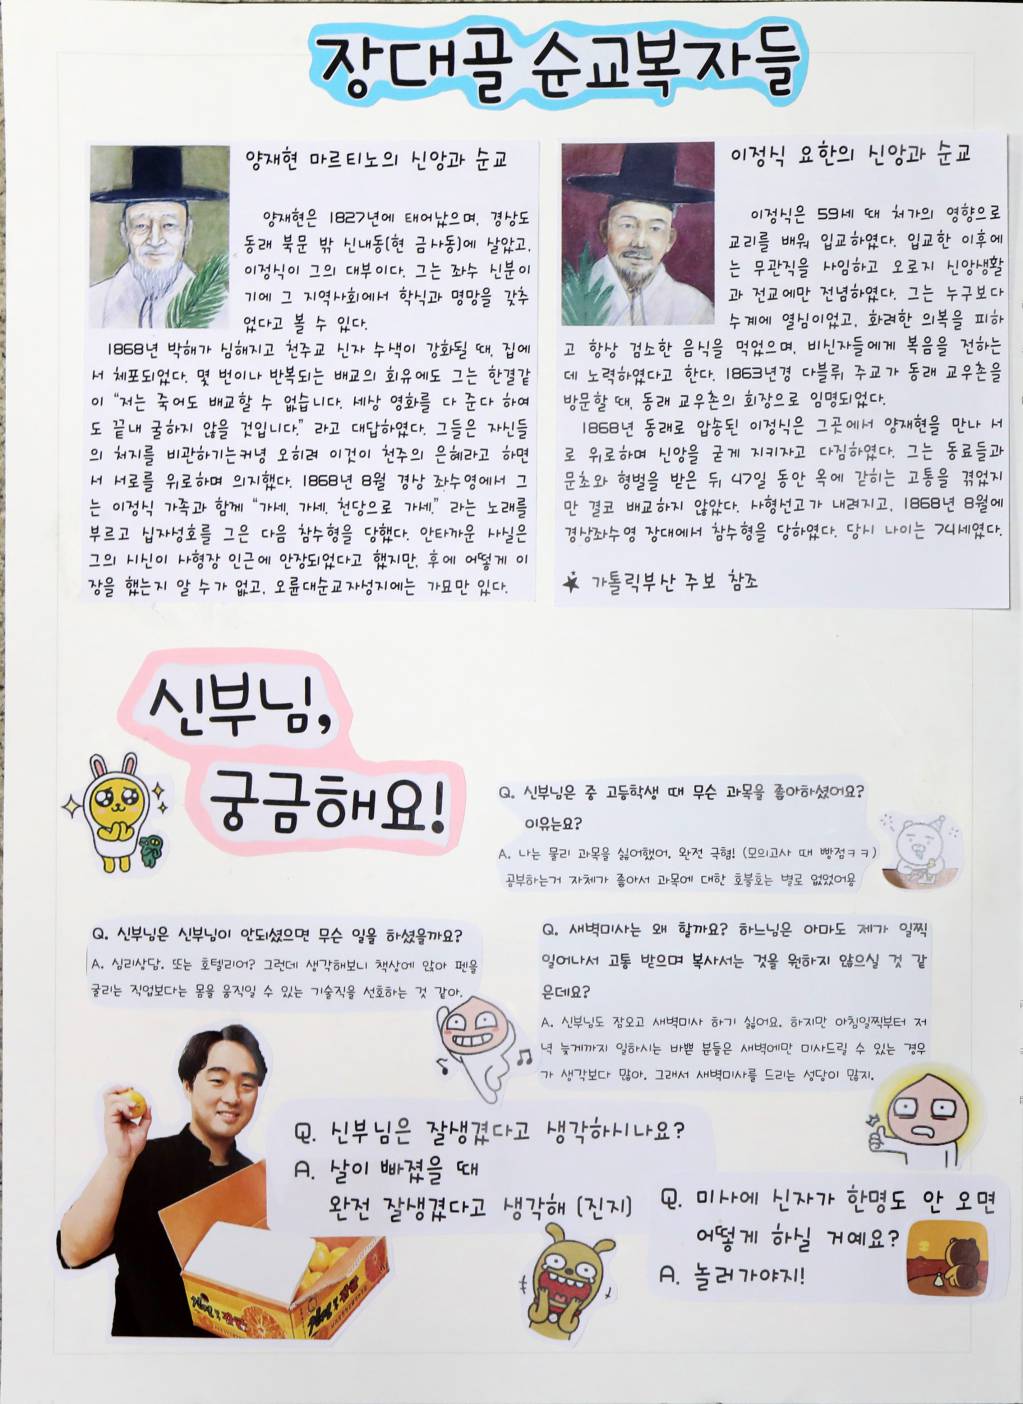 장대골 순교복자들
양재현 마르티노의 신앙과 순교
양재현은 1827년에 태어났으며, 경상도
동래 북문 밖 신내동(현 금사동)에 살았고,
이정식이 그의 대부이다. 그는 좌수 신분이
기에 그 지역사회에서 학식과 명망을 갖추
었다고 볼 수 있다.
1868년 박해가 심해지고 천주교 신자 수색이 강화될 때, 집에
서 체포되었다. 몇 번이나 반복되는 배교의 회유에도 그는 한결같
이 “저는 죽어도 배교할 수 없습니다. 세상 영화를 다 준다 하여
도 끝내 굴하지 않을 것입니다.” 라고 대답하였다. 그들은 자신들
의 처지를 비관하기는커녕 오히려 이것이 천주의 은혜라고 하면
서 서로를 위로하며 의지했다. 1868년 8월 경상 좌수영에서 그
는 이정식 가족과 함께 “가세, 가세, 천당으로 가세.” 라는 노래를
부르고 십자성호를 그은 다음 참수형을 당했다. 안타까운 사실은
그의 시신이 사형장 인근에 안장되었다고 했지만, 후에 어떻게 이
장을 했는지 알 수가 없고, 오륜대순교자성지에는 가묘만 있다.
이정식 요한의 신앙과 순교
이정식은 59세 때 처가의 영향으로
교리를 배워 입교하였다. 입교한 이후에
는 무관직을 사임하고 오로지 신앙생활
과 전교에만 전념하였다. 그는 누구보다
수계에 열심이었고, 화려한 의복을 피하
고 항상 검소한 음식을 먹었으며, 비신자들에게 복음을 전하는
데 노력하였다고 한다. 1863년경 다블뤼 주교가 동래 교우촌을
방문할 때, 동래 교우촌의 회장으로 임명되었다.
1868년 동래로 압송된 이정식은 그곳에서 양재현을 만나 서
로 위로하며 신앙을 굳게 지키자고 다짐하였다. 그는 동료들과
문초와 형벌을 받은 뒤, 47일 동안 옥에 갇히는 고통을 겪었지
만 결코 배교하지 않았다. 사형선고가 내려지고, 1868년 8월에
경상좌수영 장대에서 참수형을 당하였다. 당시 나이는 74세였다.
★ 가톨릭부산 주보 참조
신부님,
궁금해요!
Q. 신부님은 중 고등학생 때 무슨 과목을 좋아하셨어요?
이유는요?
A. 나는 물리 과목을 싫어했어. 완전 극혐! (모의고사 때 빵점ㅋㅋ)
공부하는거 자체가 좋아서 과목에 대한 호불호는 별로 없었어용
Q. 신부님은 신부님이 안되셨으면 무슨 일을 하셨을까요?
A. 심리상담, 또는 호텔리어? 그런데 생각해보니 책상에 앉아 펜을
굴리는 직업보다는 몸을 움직일 수 있는 기술직을 선호하는 것 같아.
Q. 새벽미사는 왜 할까요? 하느님은 아마도 제가 일찍
일어나서 고통 받으며 복사서는 것을 원하지 않으실 것 같
은데요?
A. 신부님도 잠오고 새벽미사 하기 싫어요. 하지만 아침일찍부터 저
녁 늦게까지 일하시는 바쁜 분들은 새벽에만 미사드릴 수 있는 경우
가 생각보다 많아. 그래서 새벽미사를 드리는 성당이 많지.
Q. 신부님은 잘생겼다고 생각하시나요?
A. 살이 빠졌을 때
완전 잘생겼다고 생각해 (진지)
Q. 미사에 신자가 한명도 안 오면
어떻게 하실 거예요?
A. 놀러가야지!